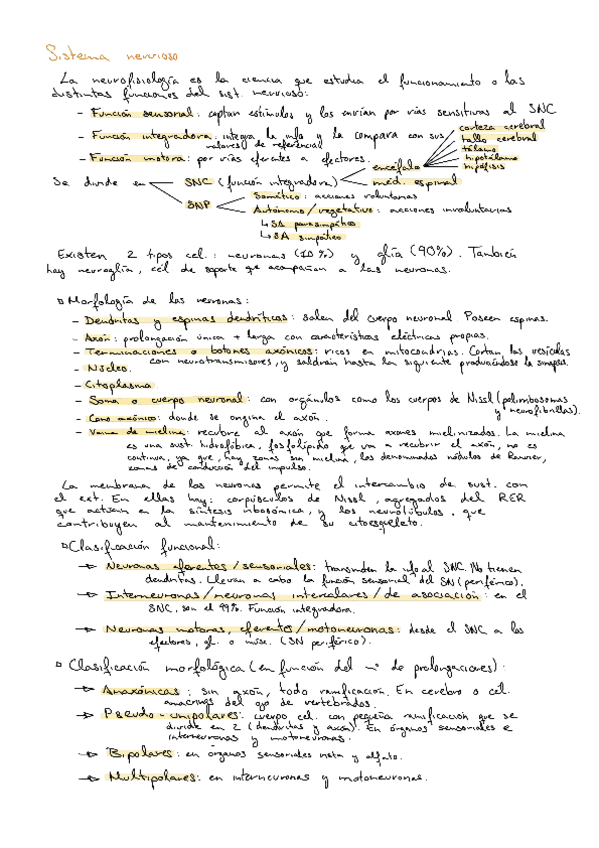 Sistema nervioso
La neurofisiología es la ciencia que estudia el funcionamiento o las
distintas funciones del sist. nervioso:
- Función sensorial: captan estímulos y los envían por vías sensitivas al SNC
- Función integradora: integra la info y la compara con sus
valores de referencia
- Función motora: por vías eferentes a efectores.
corteza cerebral
tallo cerebral
tálamo
hipotálamo
hipófisis
Se divide en SNC (función integradora) encéfalo
méd. espinal
SNP Somático: acciones voluntarias
Autónomo/vegetativo: acciones involuntarias
↳ SA parasimpático
↳ SA simpático
Existen 2 tipos cel.: neuronas (10%) y glía (90%). También
hay neuroglia, cél de soporte que acompañan a las neuronas.
Morfología de las neuronas:
- Dendritas y espinas dendríticas: salen del cuerpo neuronal. Poseen espinas.
- Axón: prolongación única + larga con características eléctricas propias.
- Terminaciones o botones axónicos: ricos en mitocondrias. Contan. las vesículas
con neurotransmisores, y saldrán hasta la siguiente produciéndose la sinapsis.
- Núcleo.
- Citoplasma
- Soma o cuerpo neuronal: con orgánulos como los cuerpos de Nissl (polirribosomas
y neurofibrillas).
- Cono axónico: donde se origina el axón.
- Vaina de mielina: recubre al axón que forma axones mielinizados. La mielina
es una sust. hidrofóbica, fosfolípido que va a recubrir el axón, no es
continua, ya que, hay zonas sin mielina, los denominados nódulos de Ranvier,
zonas de conducción del impulso.
La membrana de las neuronas permite el intercambio de sust. con
el ext. En ellas hay: corpúsculos de Nissl, agregados del RER
que actúan en la síntesis ribosómica, y los neurotúbulos, que
contribuyen al mantenimiento de su citoesqueleto.
Clasificación funcional:
→ Neuronas aferentes/sensoriales: transmiten la info al SNC. No tienen
dendritas. Llevan a cabo la función sensorial del SN (periférico).
→ Interneuronas/neuronas intercalares/de asociación: en el
SNC, son el 99%. Función integradora.
→ Neuronas motoras, eferentes/motoneuronas: desde el SNC a los
efectores, gl. o músc. (SN periférico).
Clasificación morfológica (en función del nº de prolongaciones):
→ Anaxónicas: sin axón, todo ramificación. En cerebro o cél.
amacrinas del ojo de vertebrados.
→ Pseudo-unipolares: cuerpo cel. con pequeña ramificación que se
divide en 2 (dendritas y axón). En órganos sensoriales e
interneuronas y motoneuronas.
→ Bipolares: en órganos sensoriales vista y olfato.
→ Multipolares: en interneuronas y motoneuronas.